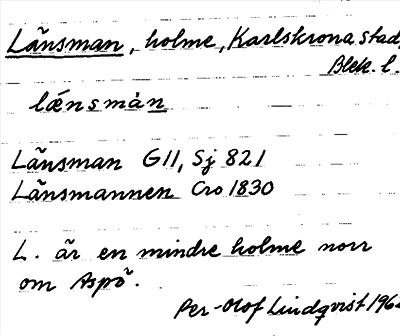 Länsman, holme, Karlskrona stad,
Blek. l.
lǽnsmàn
Länsman GII, Sj 821
Länsmannen Cro 1830
L. är en mindre holme norr
om Aspö.
Per-Olof Lindqvist